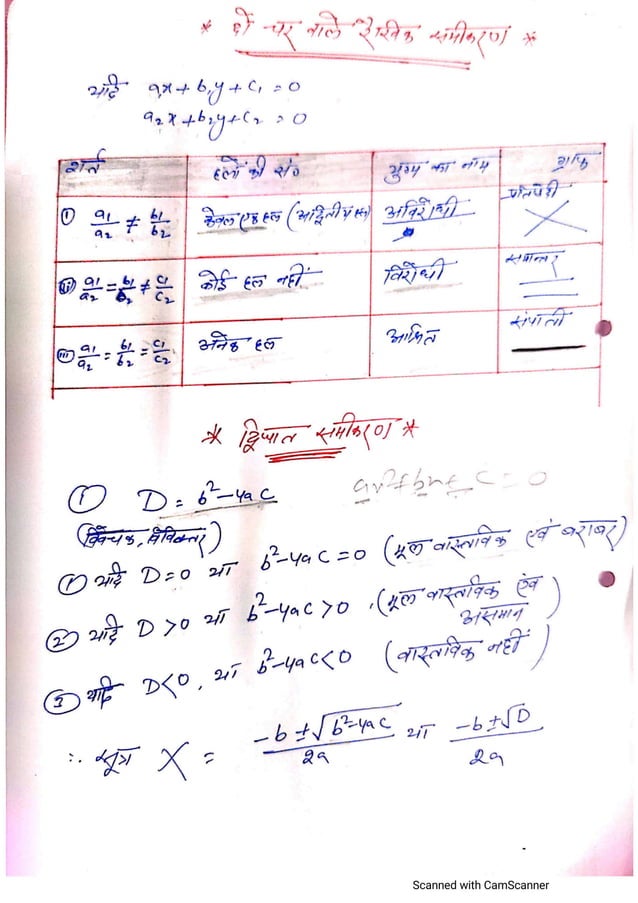 * दो चर वाले रैखिक समीकरण *
यदि a₁x + b₁y + c₁ = 0
a₂x + b₂y + c₂ = 0
शर्त हलों की सं० युग्म का नाम ग्राफ
① a₁/a₂ ≠ b₁/b₂ केवल एक हल (अद्वितीय हल) अविरोधी प्रतिच्छेदी
ii a₁/a₂ = b₁/b₂ ≠ c₁/c₂ कोई हल नहीं विरोधी समान्तर
iii a₁/a₂ = b₁/b₂ = c₁/c₂ अनेक हल आश्रित संपाती
* द्विघात समीकरण *
① D = b²-4ac ax²+bx+c=0
(विवेचक, विविक्तकर)
① यदि D=0 या b²-4ac=0 (मूल वास्तविक एवं बराबर)
② यदि D>0 या b²-4ac>0, (मूल वास्तविक एवं असमान)
③ यदि D<0, या b²-4ac<0 (वास्तविक नहीं)
∴ सूत्र X = -b±√b²-4ac/2a या -b±√D/2a
Scanned with CamScanner